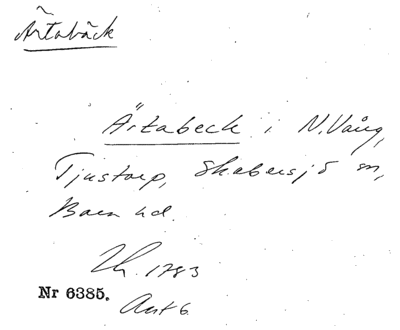 Ärtabäck
Ärtabeck i N. Vång,
Tjustorp, Skabersjö sn,
Bara hd.
Lh. 1783
Nr 6385.
Akt 6